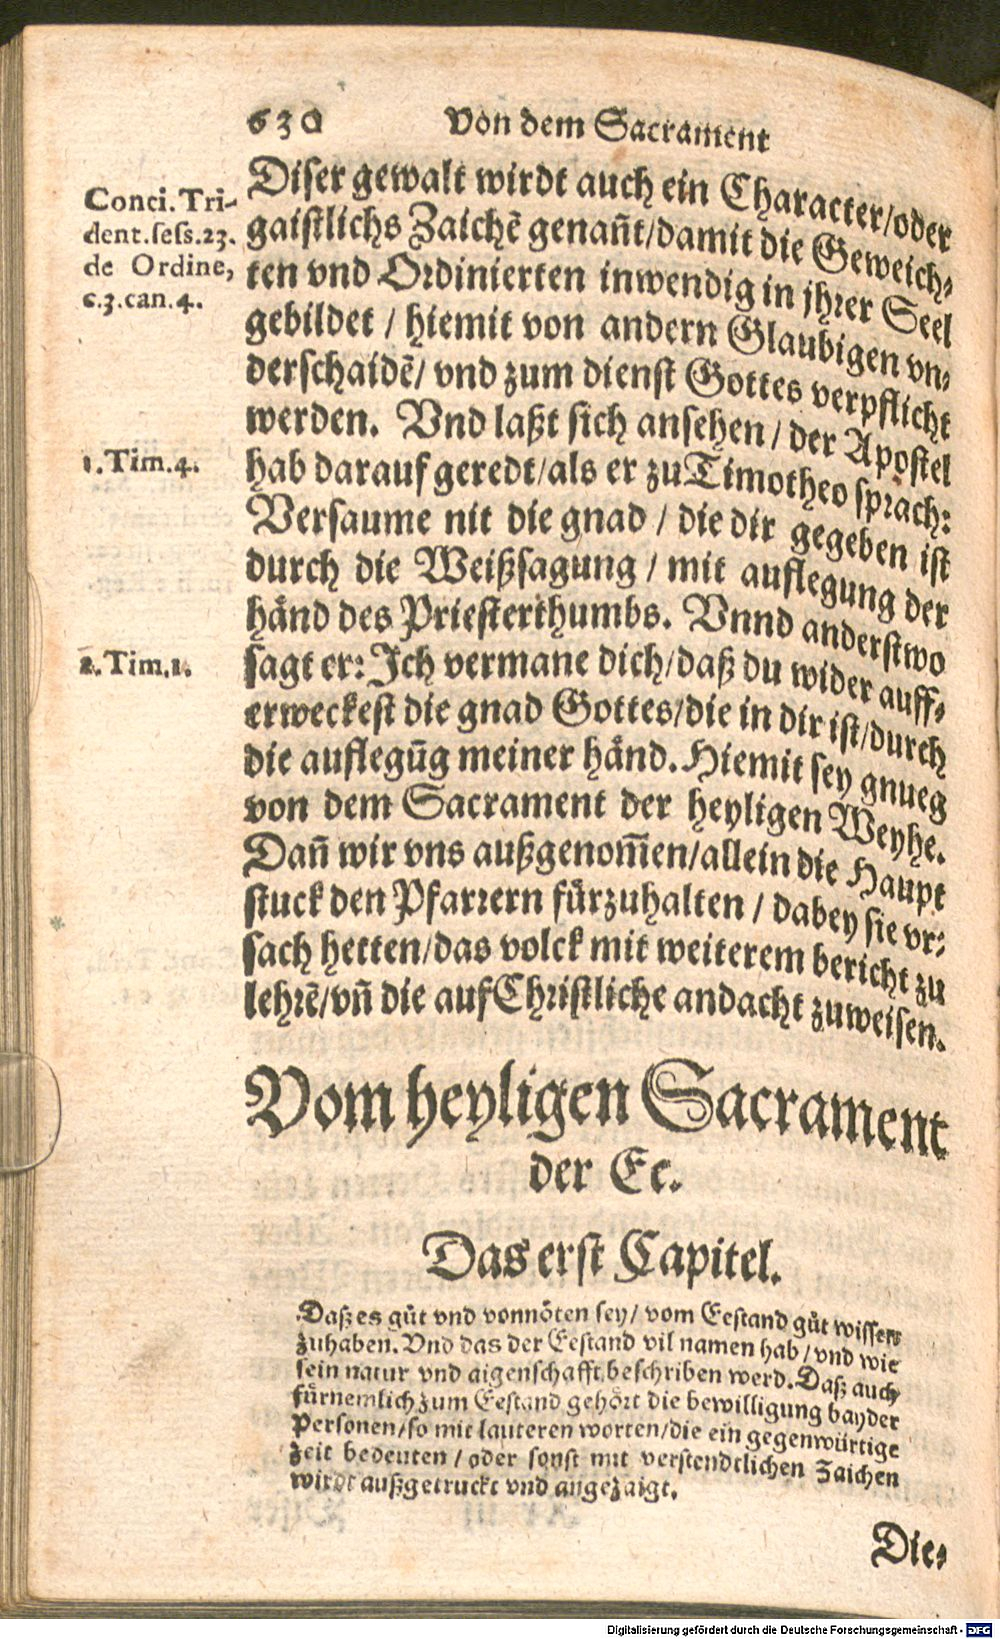 630 Von dem Sacrament
Conci. Tri-
dent. sess. 23.
de Ordine,
c.3.can.4.
Diser gewalt wirdt auch ein Character/oder
gaistlichs Zaichē genañt/damit die Geweich-
ten vnd Ordinierten inwendig in jhrer Seel
gebildet / hiemit von andern Glaubigen vn-
derschaidē/ vnd zum dienst Gottes verpflicht
werden. Vnd laßt sich ansehen / der Apostel
1.Tim.4.
hab darauf geredt/als er zu Timotheo sprach:
Versaume nit die gnad / die dir gegeben ist
durch die Weißsagung / mit auflegung der
händ des Priesterthumbs. Vnnd anderstwo
2.Tim.1.
sagt er: Ich vermane dich/daß du wider auff-
erweckest die gnad Gottes/die in dir ist/durch
die auflegūg meiner händ. Hiemit sey gnueg
von dem Sacrament der heyligen Weyhe.
Dañ wir vns außgenom̄en/allein die Haupt
stuck den Pfarrern fürzuhalten / dabey sie vr-
sach hetten/das volck mit weiterem bericht zu
lehrē/vñ die auf Christliche andacht zuweisen.
Vom heyligen Sacrament
der Ee.
Das erst Capitel.
Daß es gůt vnd vonnöten sey/ vom Eestand gůt wissen
zuhaben. Vnd das der Eestand vil namen hab / vnd wie
sein natur vnd aigenschafft beschriben werd. Daß auch
fürnemlich zum Eestand gehört die bewilligung bayder
Personen/so mit lauteren worten/die ein gegenwürtige
zeit bedeuten / oder sonst mit verstendtlichen Zaichen
wirdt außgetruckt vnd angezaigt.
Die-
Digitalisierung gefördert durch die Deutsche Forschungsgemeinschaft - DFG